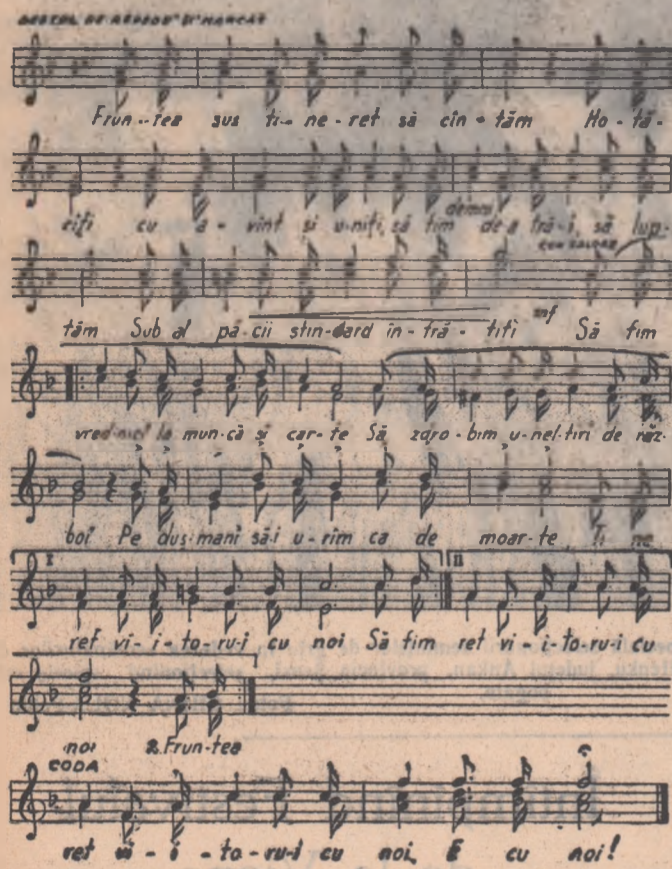 DESTUL DE REPEDE ȘI MARCAT
Frun-tea sus ti-ne-ret să cîn-tăm Ho-tă-
rîți cu a-vînt și u-niți, să fim demni de-a tră-i, să lup-
tăm Sub al pă-cii stin-dard în-fră-țiți mf Să fim
vred-nici la mun-că și car-te Să zdro-bim u-nel-tiri de răz-
boi Pe duș-mani să-i u-rîm ca de moar-te, Ti ne
I II
ret vi-i-to-ru-i cu noi Să fim ret vi-i-to-ru-i cu
noi 2. Frun-tea
CODA
ret vi-i-to-ru-i cu noi, E cu noi!